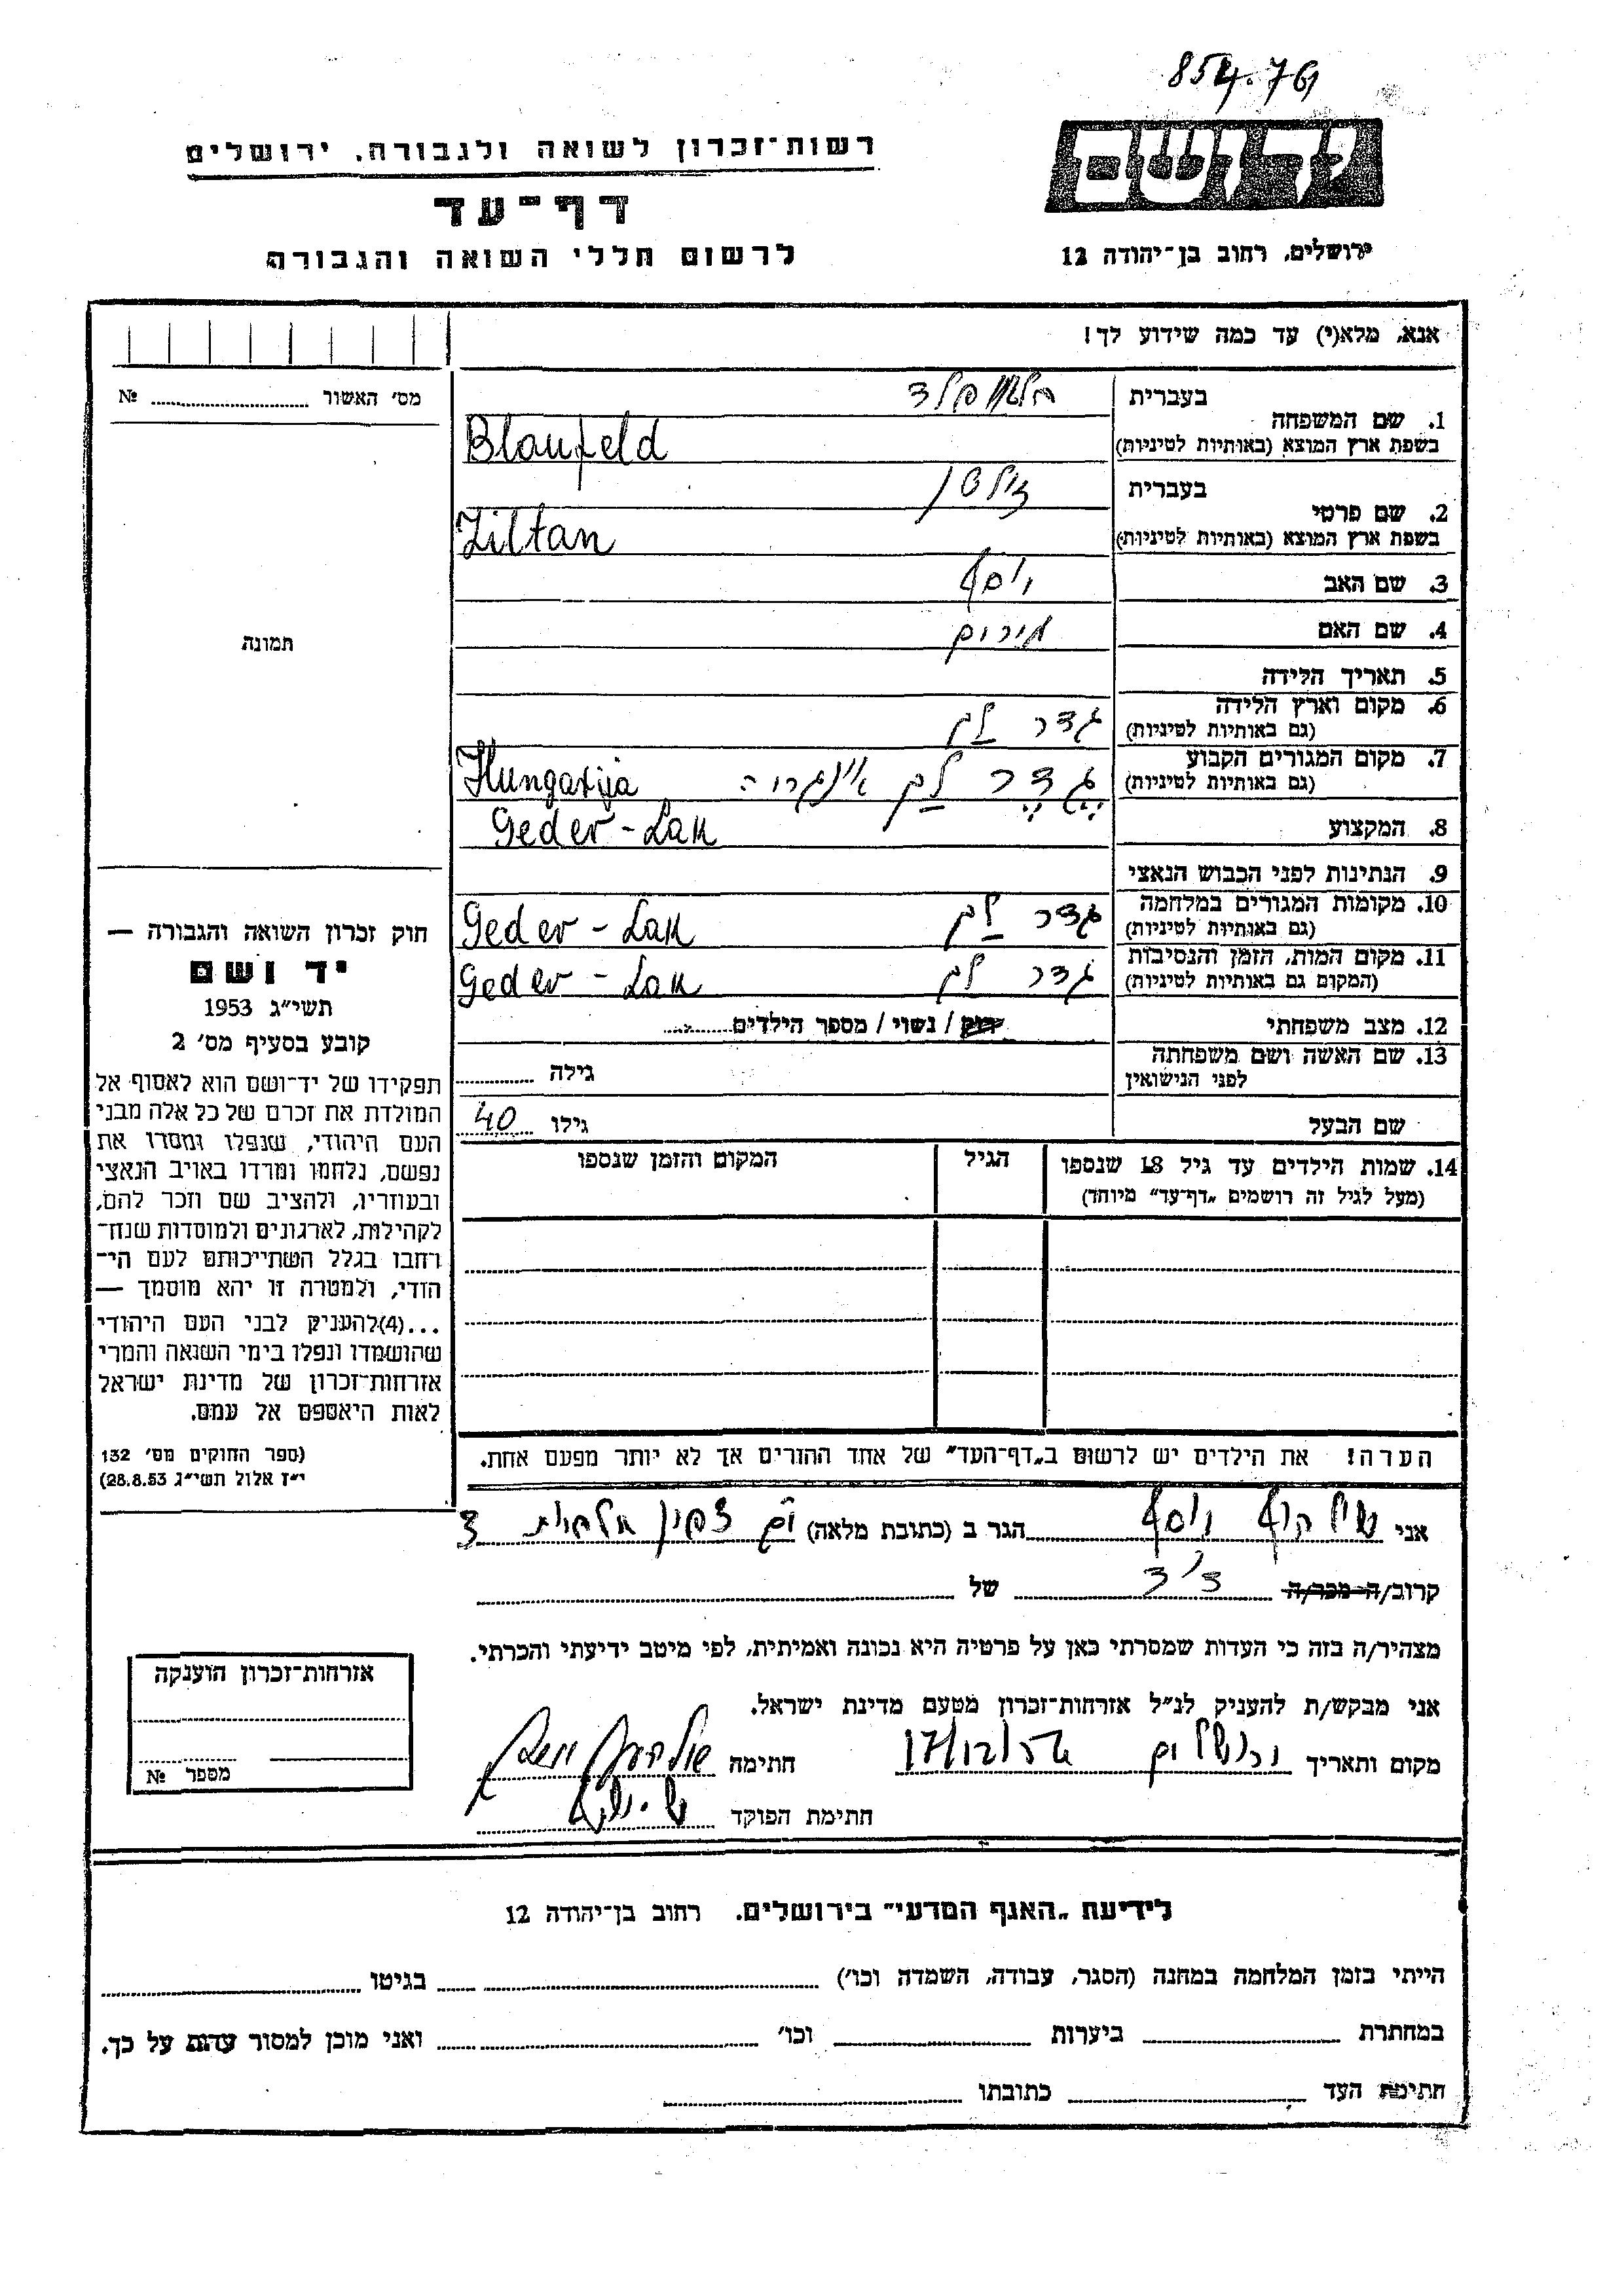 854.76
רשות־זכרון לשואה ולגבורה, ירושלים
יד ושם
דף־עד
לרשום חללי השואה והגבורה
ירושלים, רחוב בן־יהודה 12
אנא, מלא(י) עד כמה שידוע לך!
מס׳ האשור № ........
1. שם המשפחה
בעברית בלאופלד
בשפת ארץ המוצא (באותיות לטיניות) Blaufeld
2. שם פרטי
בעברית זילטן
בשפת ארץ המוצא (באותיות לטיניות) Ziltan
3. שם האב יוסף
4. שם האם מירים
5. תאריך הלידה
6. מקום וארץ הלידה
(גם באותיות לטיניות) גדר לק
7. מקום המגורים הקבוע
(גם באותיות לטיניות) גדר לק אונגריה Hungarija
8. המקצוע Geder-Lak
9. הנתינות לפני הכבוש הנאצי
10. מקומות המגורים במלחמה
(גם באותיות לטיניות) גדר לק Geder-Lak
11. מקום המות, הזמן והנסיבות
(המקום גם באותיות לטיניות) גדר לק Geder-Lak
12. מצב משפחתי רווק / נשוי / מספר הילדים........
13. שם האשה ושם משפחתה
לפני הנישואין גילה ........
שם הבעל גילו 40
14. שמות הילדים עד גיל 18 שנספו
(מעל לגיל זה רושמים „דף־עד״ מיוחד)
הגיל
המקום והזמן שנספו
תמונה
חוק זכרון השואה והגבורה —
יד ושם
תשי״ג 1953
קובע בסעיף מס׳ 2
תפקידו של יד־ושם הוא לאסוף אל
המולדת את זכרם של כל אלה מבני
העם היהודי, שנפלו ומסרו את
נפשם, נלחמו ומרדו באויב הנאצי
ובעוזריו, ולהציב שם וזכר להם,
לקהילות, לארגונים ולמוסדות שנח־
רחבו בגלל השתייכותם לעם הי־
הודי, ולמטרה זו יהא מוסמך —
...(4)להעניק לבני העם היהודי
שהושמדו ונפלו בימי השואה והמרי
אזרחות־זכרון של מדינת ישראל
לאות היאספם אל עמם.
(ספר החוקים מס׳ 132
י״ז אלול תשי״ג 28.8.53)
הערה! את הילדים יש לרשום ב„דף־העד״ של אחד ההורים אך לא יותר מפעם אחת.
אני יוסף הגר ב (כתובת מלאה) 3
קרוב/ה מכר/ה דוד של
מצהיר/ה בזה כי העדות שמסרתי כאן על פרטיה היא נכונה ואמיתית, לפי מיטב ידיעתי והכרתי.
אני מבקש/ת להעניק לנ״ל אזרחות־זכרון מטעם מדינת ישראל.
מקום ותאריך ירושלים 17/12/56 חתימה
חתימת הפוקד
אזרחות־זכרון הוענקה
מספר №
לידיעת „האגף המדעי״ בירושלים. רחוב בן־יהודה 12
הייתי בזמן המלחמה במחנה (הסגר, עבודה, השמדה וכו׳) ........ בגיטו ........
במחתרת ........ ביערות ........ וכו׳ ........ ואני מוכן למסור עדות על כך.
חתימת העד ........ כתובתו ........